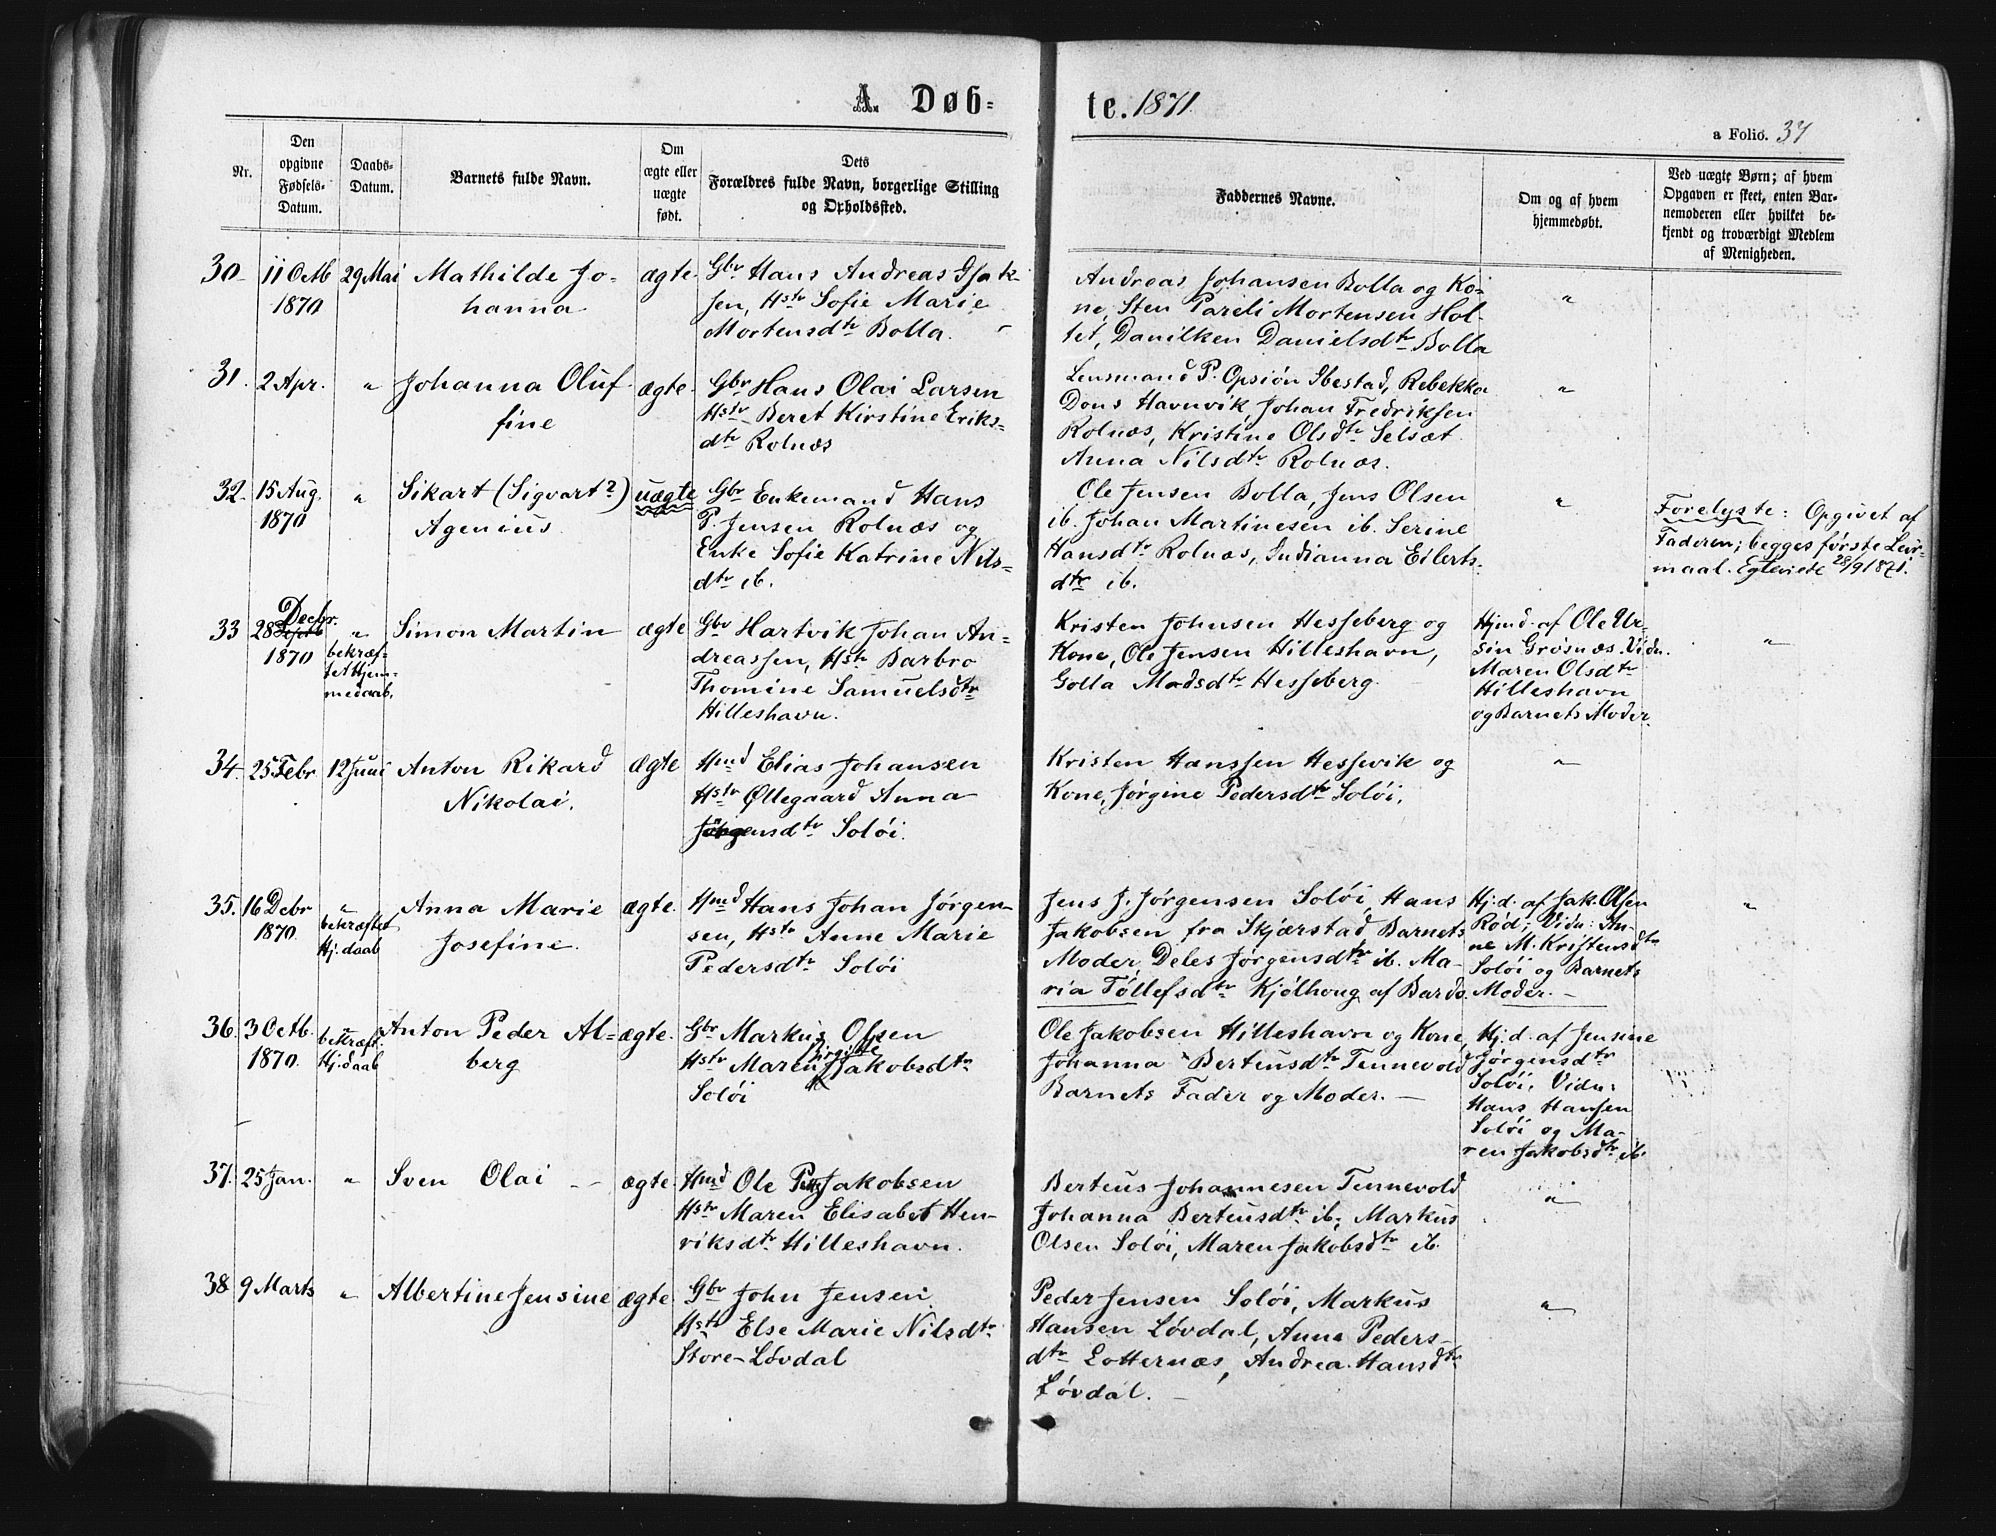 A. Døb-
te. 1871.
a Folio. 37
Nr.
Den opgivne Fødsels-Datum.
Daabs-Datum.
Barnets fulde Navn.
Om ægte eller uægte født.
Dets Forældres fulde Navn, borgerlige Stilling og Opholdssted.
Faddernes Navne.
Om og af hvem hjemmedøbt.
Ved uægte Børn; af hvem Opgaven er skeet, enten Barnemoderen eller hvilket bekjendt og troværdigt Medlem af Menigheden.
30. 11 Octb 29 Mai Mathilde Jo- ægte. Gbr Hans Andreas Isak-
1870 hanna sen, Hstr Sofie Marie
Mortensdtr Bolla.
Andreas Johansen Bolla og Ko-
ne, Sten Pareli Mortensen Hol-
tet, Danilken Danielsdtr Bolla
"
31. 2 Apr. " Johanna Oluf ægte. Gbr Hans Olai Larsen
fine Hstr Beret Kirstine Eriks-
dtr Rolnæs
Lensmand P. Opsiön Ibestad, Rebekka
Dons Havnvik, Johan Fredriksen
Rolnæs, Kristine Olsdtr Selsæt
Anna Nilsdtr Rolnæs.
"
32. 15 Aug. " Sikart (Sigvart?) uægte Gbr Enkemand Hans
1870 Agenius P. Jensen Rolnæs og
Enke Sofie Katrine Nils-
dtr ib.
Ole Jensen Bolla, Jens Olsen
ib. Johan Martinesen ib. Serine
Hansdtr Rolnæs, Indianna Eilerts-
dtr ib.
"
Forelyste: Opgivet af
Faderen; begges første Leir-
maal. Egteviede 28/9 1871.
33 28 Decbr. " Simon Martin ægte Gbr Hartvik Johan An-
1870 bekræf- dreassen, Hstr Barbro
tet Hjem- Thomine Samuelsdtr
medaab. Hilleshavn.
Kristen Johnsen Hesseberg og
Kone, Ole Jensen Hilleshavn,
Golla Madsdtr Hesseberg.
Hjmd. af Ole Ur-
sin Grøsnæs. Vidn.
Maren Olsdtr
Hilleshavn
og Barnets Moder.
"
34 25 Febr 12 Juni Anton Rikard ægte Hmd Elias Johansen
Nikolai. Hstr Øllegaard Anna
Jörgensdtr Solöi.
Kristen Hanssen Hessevik og
Kone, Jørgine Pedersdtr Solöi.
"
35. 16 Debr " Anna Marie ægte. Hmd Hans Johan Jørgen-
1870. bekræftet Josefine. sen, Hstr Anne Marie
Hj.daab Pedersdtr Solöi
Jens J. Jørgensen Solöi, Hans
Jakobsen fra Skjærstad Barnets
Moder, Deles Jørgensdtr ib. Ma-
ria Tøllefsdtr Kjölhoug af Bardo.
Hj.d. af Jak. Olsen
Rød; Vidn: An-
ne M. Kristensdtr
Solöi og Barnets
Moder. —
"
36. 3 Octb. " Anton Peder Al- ægte. Gbr Markus Olsen
1870. bekræft. berg Hstr Maren Birgitte Jakobsdtr
Hj.daab Solöi
Ole Jakobsen Hilleshavn og Kone,
Johanna Berteusdtr Tennevold
Barnets Fader og Moder. —
Hj.d. af Jensine
Jørgensdtr
Solöi, Vidn:
Hans Hansen
Solöi og Ma-
ren Jakobsdtr ib.
37. 25 Jan. " Sven Olai — ægte. Hmd Ole Jakobsen
Hstr Maren Elisabet Hen-
riksdtr Hilleshavn.
Berteus Johannesen Tennevold
Johanna Berteusdtr ib., Markus
Olsen Solöi, Maren Jakobsdtr ib.
"
38 9 Marts " Albertine Jensine ægte Gbr John Jensen
Hstr Else Marie Nilsdtr
Store-Løvdal
Peder Jensen Solöi, Markus
Hansen Løvdal, Anne Peders-
dtr Lotternæs, Andrea Hansdtr
Løvdal. —
"